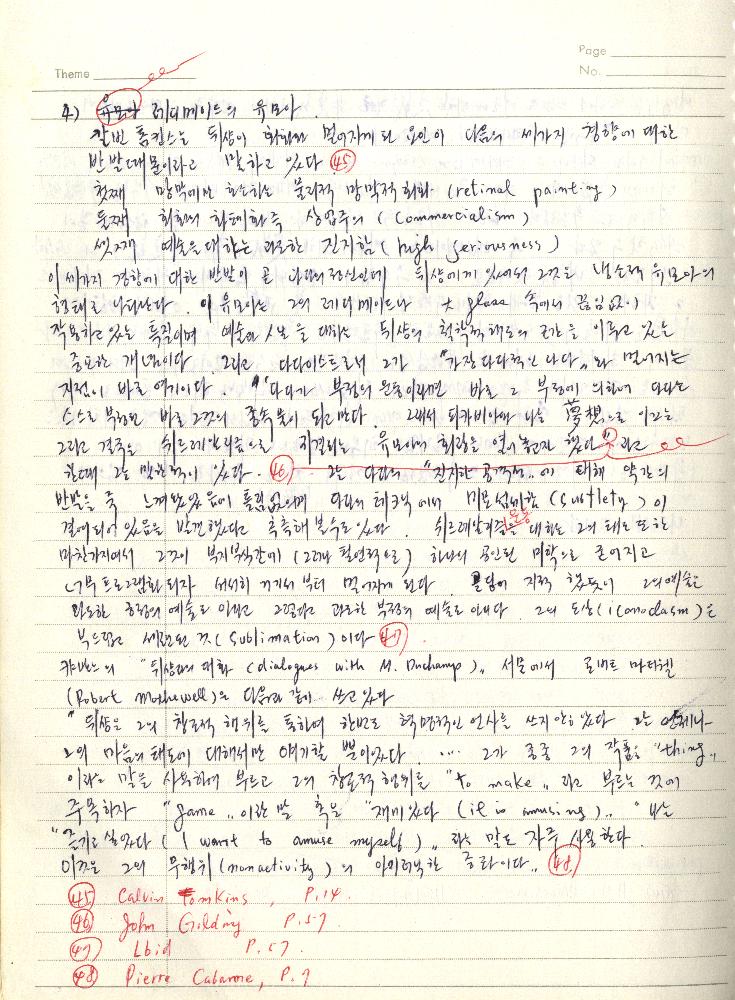 Page
Theme
No.
4) 유모아 레디메이드의 유모아.
칼빈 톰킨스는 뒤샹이 회화와 멀어지게 된 요인이 다음의 세가지 경향에 대한
반발 때문이라고 말하고 있다 45
첫째 망막에만 호소하는 물리적 망막적 회화 (retinal painting)
둘째 회화의 화폐화 즉 상업주의 (Commercialism)
셋째 예술을 대하는 과도한 진지함 (high seriousness)
이 세가지 경향에 대한 반발이 곧 다다의 정신인데 뒤샹에게 있어서 그것은 냉소적 유모아의
형태로 나타난다. 이 유모아는 그의 레디메이드나 大 glass 속에서 끊임없이
작용하고 있는 특질이며 예술과 人生을 대하는 뒤샹의 철학적 태도의 근간을 이루고 있는
중요한 개념이다. 그리고 다다이스트로서 그가 "가장 다다적인 다다"와 멀어지는
지점이 바로 여기이다. "다다가 부정의 운동이라면 바로 그 부정에 의하여 다다는
스스로 부정된 바로 그것의 종속물이 되고 만다. 그래서 피카비아와 나는 夢想으로 이끄는
그리고 결국은 쉬르레알리즘으로 직결되는 유모아의 회랑을 열어 놓자 했다" 라고
한때 그는 말한 적이 있다. 46 그는 다다의 "진지한 공격성"에 대해 약간의
반발을 즉 느껴왔었음에 틀림없으며 다다의 테크닉에서 미묘섬세함 (Subtlety)이
결여되어 있음을 발견했다고 추측해 볼 수도 있다. 쉬르레알리즘 운동을 대하는 그의 태도 또한
마찬가지여서 그것이 부지부식간에 (그러나 필연적으로) 하나의 공인된 미학으로 굳어지고
너무 프로그램화 되자 서서히 거기서부터 멀어지게 된다. 골딩이 지적했듯이 그의 예술은
과도한 긍정의 예술도 아니고 그렇다고 과도한 부정의 예술도 아니다. 그의 도상(iconoclasm)은
부드럽고 세련된 것(Sublimation)이다 47.
캬반느의 "뒤샹과의 대화 (dialogues with M. Duchamp)" 서문에서 로버트 마더웰
(Robert Motherwell)은 다음과 같이 쓰고 있다
"뒤샹은 그의 창조적 행위를 통하여 한번도 혁명적인 언사를 쓰지 않았다. 그는 언제나
그의 마음의 태도에 대해서만 얘기할 뿐이었다. .... 그가 종종 그의 작품을 "thing"
이라는 말을 사용하여 부르고 그의 창조적 행위를 "to make" 라고 부르는 것에
주목하자 "game" 이란 말 혹은 "재미있다 (it is amusing)" "나는
"즐기고 싶었다 (I want to amuse myself)" 라는 말도 자주 사용한다.
이것은 그의 무행위(nonactivity)의 아이러닉한 증좌이다" 48
45 Calvin Tomkins, P.14.
46 John Golding P.57.
47 Lbid P.57
48 Pierre Cabanne, P.9